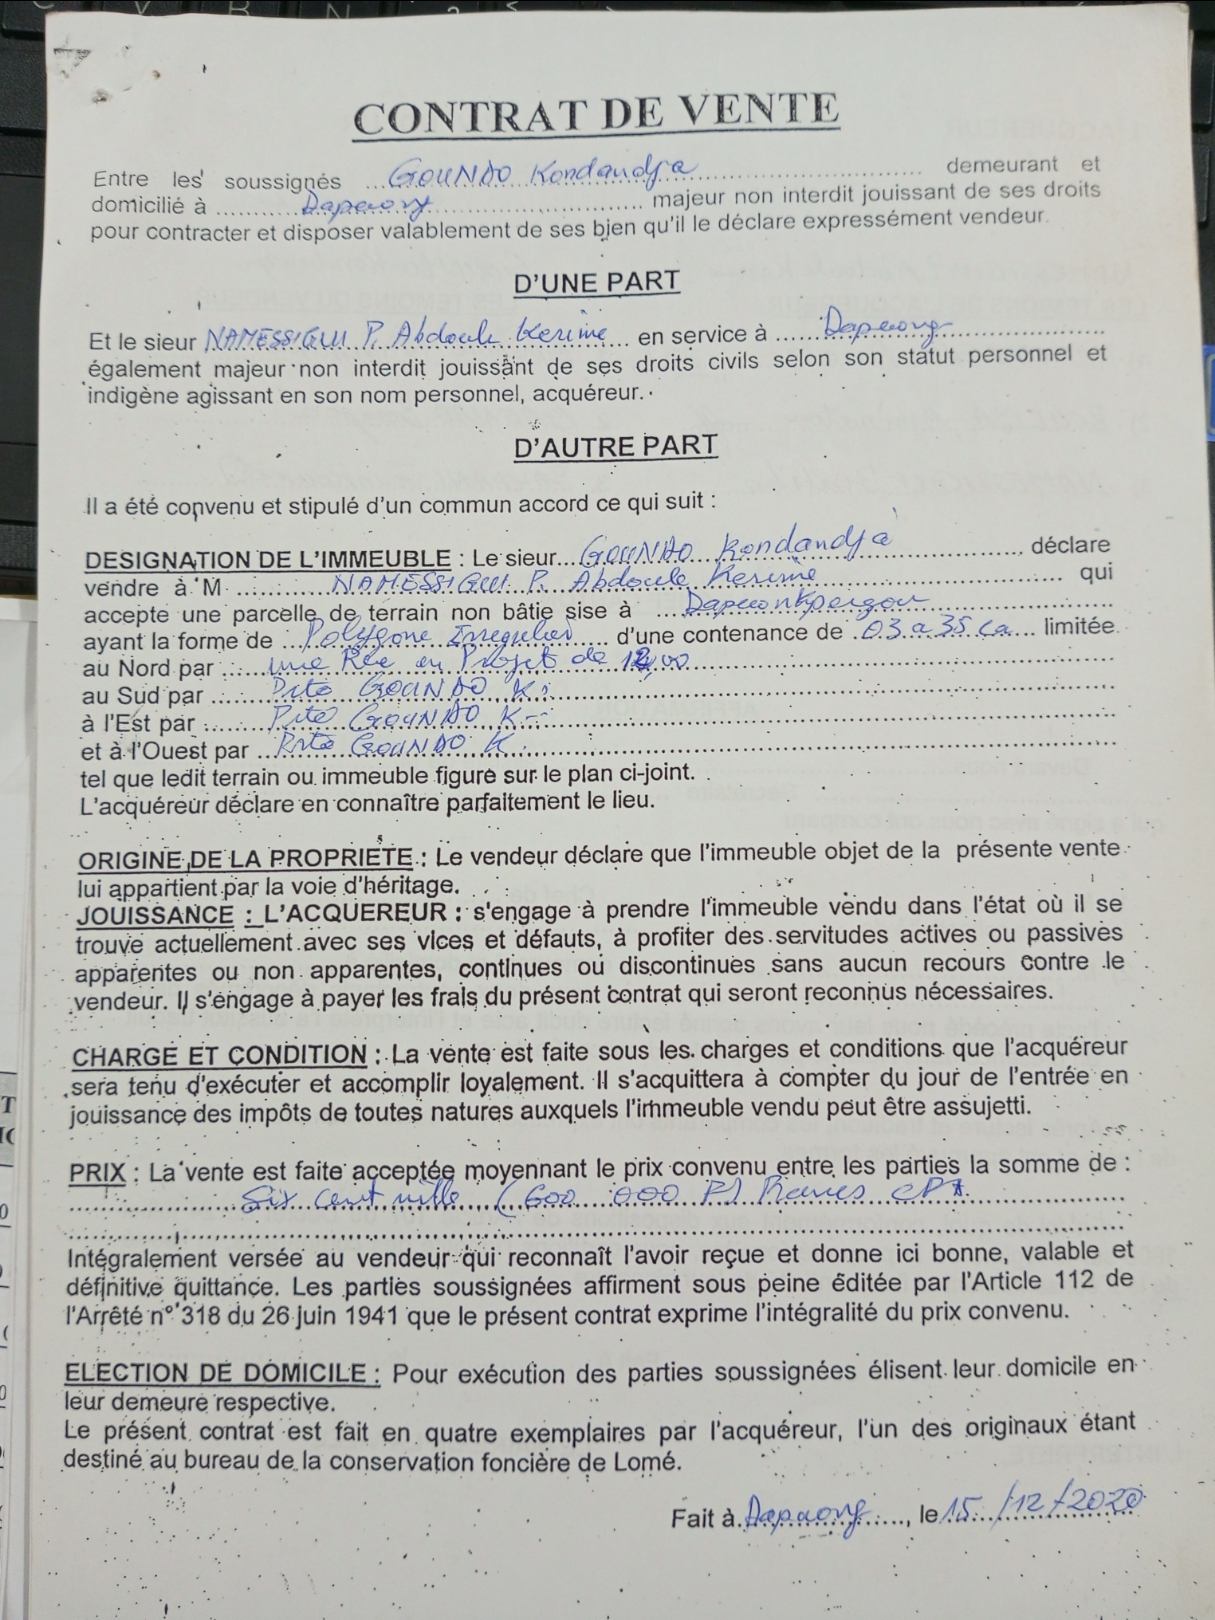 CONTRAT DE VENTE
Entre les soussignés ...GOUNDO Kondandja.......... demeurant et
domicilié à .........Dapaong.................. majeur non interdit jouissant de ses droits
pour contracter et disposer valablement de ses bien qu'il le déclare expressément vendeur.
D'UNE PART
Et le sieur NAMESSIGUI P. Abdoule Kerime... en service à ......Dapaong..................
également majeur non interdit jouissant de ses droits civils selon son statut personnel et
indigène agissant en son nom personnel, acquéreur.
D'AUTRE PART
Il a été convenu et stipulé d'un commun accord ce qui suit :
DESIGNATION DE L'IMMEUBLE : Le sieur...GOUNDO Kondandja.............., déclare
vendre à M ...........NAMESSIGUI P. Abdoule Kerime........................ qui
accepte une parcelle de terrain non bâtie sise à ....Dapaonkpergou..................
ayant la forme de ...Polygone Irregulier..... d'une contenance de .03 a 35 ca... limitée
au Nord par .......une Rue en Projet de 12,00..................
au Sud par .......Pité GOUNDO K..................
à l'Est par .......Pité GOUNDO K..................
et à l'Ouest par ..Pité GOUNDO K..................
tel que ledit terrain ou immeuble figure sur le plan ci-joint.
L'acquéreur déclare en connaître parfaitement le lieu.
ORIGINE DE LA PROPRIETE : Le vendeur déclare que l'immeuble objet de la présente vente
lui appartient par la voie d'héritage.
JOUISSANCE : L'ACQUEREUR : s'engage à prendre l'immeuble vendu dans l'état où il se
trouve actuellement avec ses vices et défauts, à profiter des servitudes actives ou passives
apparentes ou non apparentes, continues ou discontinues sans aucun recours contre le
vendeur. Il s'engage à payer les frais du présent contrat qui seront reconnus nécessaires.
CHARGE ET CONDITION : La vente est faite sous les charges et conditions que l'acquéreur
sera tenu d'exécuter et accomplir loyalement. Il s'acquittera à compter du jour de l'entrée en
jouissance des impôts de toutes natures auxquels l'immeuble vendu peut être assujetti.
PRIX : La vente est faite acceptée moyennant le prix convenu entre les parties la somme de :
..................Six cent mille (600 000 F) Francs CFA..................
Intégralement versée au vendeur qui reconnaît l'avoir reçue et donne ici bonne, valable et
définitive quittance. Les parties soussignées affirment sous peine éditée par l'Article 112 de
l'Arrêté n° 318 du 26 juin 1941 que le présent contrat exprime l'intégralité du prix convenu.
ELECTION DE DOMICILE : Pour exécution des parties soussignées élisent leur domicile en
leur demeure respective.
Le présent contrat est fait en quatre exemplaires par l'acquéreur, l'un des originaux étant
destiné au bureau de la conservation foncière de Lomé.
Fait à.Dapaong......, le 15/12/2020